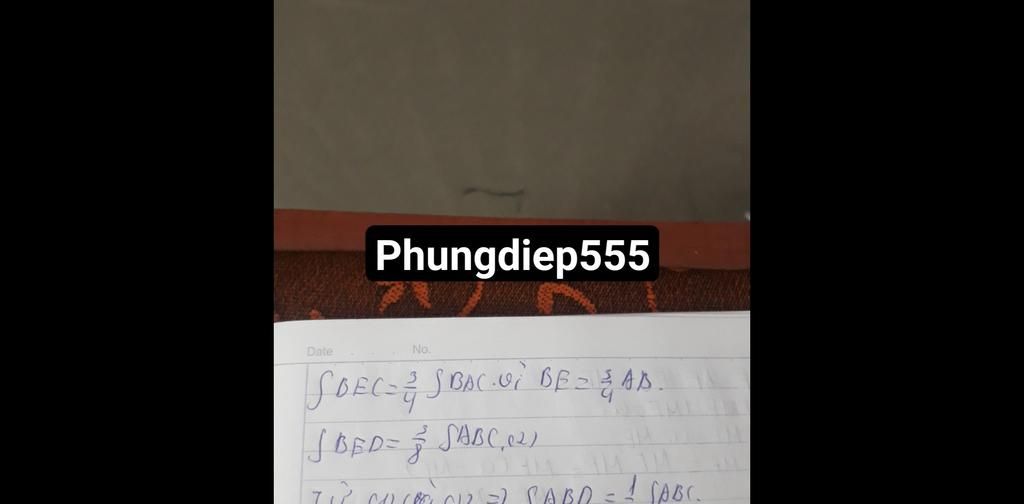 Phungdiep555
Date . . . No.
SBEC = 3/4 SBAC. vì BE = 3/4 AB.
SBED = 3/8 SABC. (2)
Từ (1) và (2) => SABD = 1/ SABC.